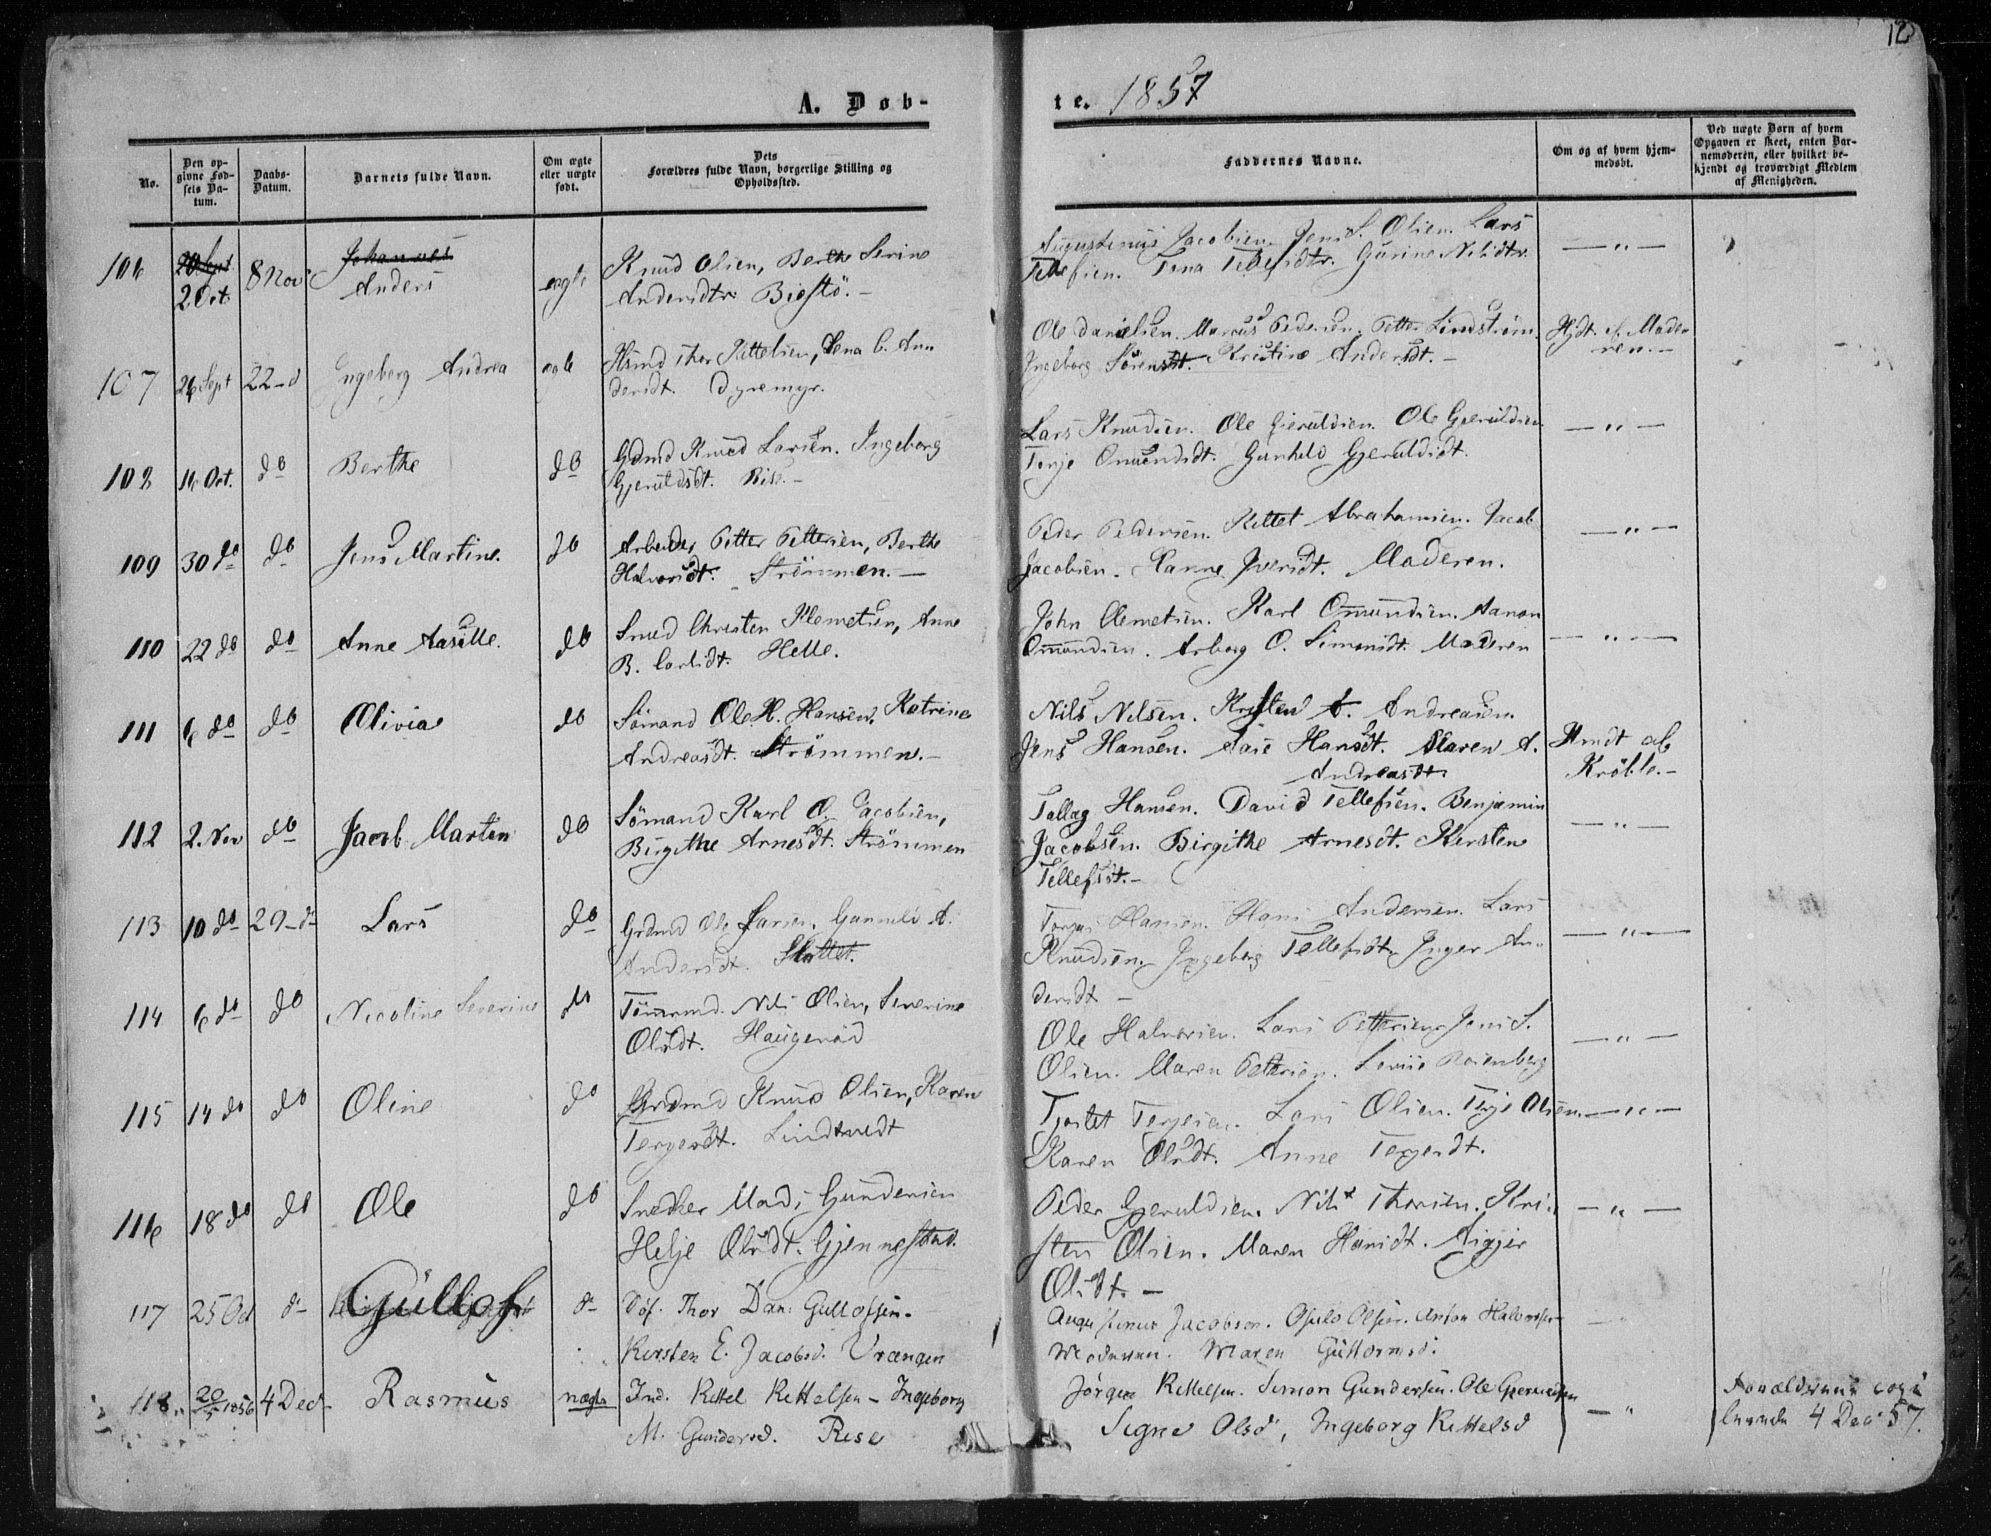 12
A. Døb-
te. 1857
No.
Den op-
givne Fød-
sels Da-
tum.
Daabs-
Datum.
Barnets fulde Navn.
Om ægte
eller uægte
født.
Dets
Forældres fulde Navn, borgerlige Stilling og
Opholdssted.
Faddernes Navne.
Om og af hvem hjem-
medøbt.
Ved uægte Børn af hvem
Opgaven er skeet, enten Bar-
nemoderen, eller hvilket be-
kjendt og troværdigt Medlem
af Menigheden.
106
20 Sept
2 Oct.
8 Nov
Johannes
Anders
ægte
Knud Olsen, Berthe Serine
Andersdtr Biestö. —
Augustinus Jacobsen. Jens S. Olsen. Lars
Tellefsen. Tena Tellefsdtr. Gurine Nilsdtr.
— " —
107
26 Sept
22 - d
Ingeborg Andrea
ægte
Husmd Thor Kittelsen, Lena C. An-
dersdt. Dyremyr.
Ole Danielsen. Marcus Pedersen. Petter Lindström.
Ingeborg Sörensdt. Kristine Andersdt. —
Hjdt. af Mode-
ren. —
108
16 Oct.
do
Berthe
do
Grdmd Knud Larsen. Ingeborg
Gjeruldsdt. Rise. —
Lars Knudsen. Ole Gjeruldsen. Ole Gjeruldsen
Terje Omundsdt. Gunhild Gjeruldsdt.
— " —
109
30 do
do
Jens Martine.
do
Arbeider Petter Pettersen, Berthe
Halvorsdt. Strömmen. —
Peder Pedersen. Kittel Abrahamsen. Jacob
Jacobsen. Hanne Iversdt. Moderen.
— " —
110
22 do
do
Anne Aasille.
do
Smed Christen Klemetsen, Anne
B. Carlsdt. Helle.
John Clemetsen. Karl Omundsen. Aanon
Omundsen. Arborg O. Simonsdt. Moderen
— " —
111
6 do
do
Olivia
do
Sömand Ole H. Hansen. Katrine
Andreasdt. Strömmen. —
Nils Nilsen. Kristen A. Andreasen.
Jens Hansen. Aase Hansdt. Maren A.
Andreasdt.
Hmdt af
Kröble. —
112
2. Nov
do
Jacob Marten
do
Sömand Karl O. Jacobsen,
Birgithe Arnesdt. Strömmen
Tallag Hansen. David Tellefsen. Benjamin
Jacobsen. Birgithe Arnesdt. Kersten
Tellefsdt. —
— " —
113
10 do
29 - d
Lars
do
Grdmd Ole Larsen, Gunnild A.
Andersdt. Slottet.
Torjus Hansen. Hans Andersen. Lars
Knudsen. Ingeborg Tellefsdt. Inger An-
dersdt —
— " —
114
6 do
do
Nicoline Severine
do
Tömrmd. Nils Olsen, Severine
Olsdt. Haugeröd
Ole Halvorsen. Lars Pettersen. Jens S.
Olsen. Maren Pettersen. Rosenberg
— " —
115
14 do
do
Oline
do
Grdmd Knud Olsen, Karen
Tergersdt. Lindtvedt
Tjostel Terjesen. Lars Olsen. Terje Olsen.
Karen Olsdt. Anne Tergersdt.
— " —
116
18 do
do
Ole
do
Snedker Mads Gundersen
Helje Olsdt. Gjennestad.
Peder Gjeruldsen. Nils Thorsen. Kri-
sten Olsen. Maren Hansdt. Aigjer
Olsdt. —
— " —
117
25 Oct
d
Güllof
d
Söf. Thor Dan: Gullofsen.
Kersten E. Jacobsd. Vrængen
Augustinus Jacobsen. Osulo Olsen. Anton Halvorsen
Moderen. Maren Güttormsd.
118
20/5 1856
4 Dec
Rasmus
uægte
Ind. Kittel Kittelsen - Ingeborg
M. Gundersd. Rise
Jörgen Kittelsen. Simon Gundersen. Ole Gjeruldsen
Signe Olsd, Ingeborg Kittelsd
— "
Forældrene copu
lerede 4 Dec 57.